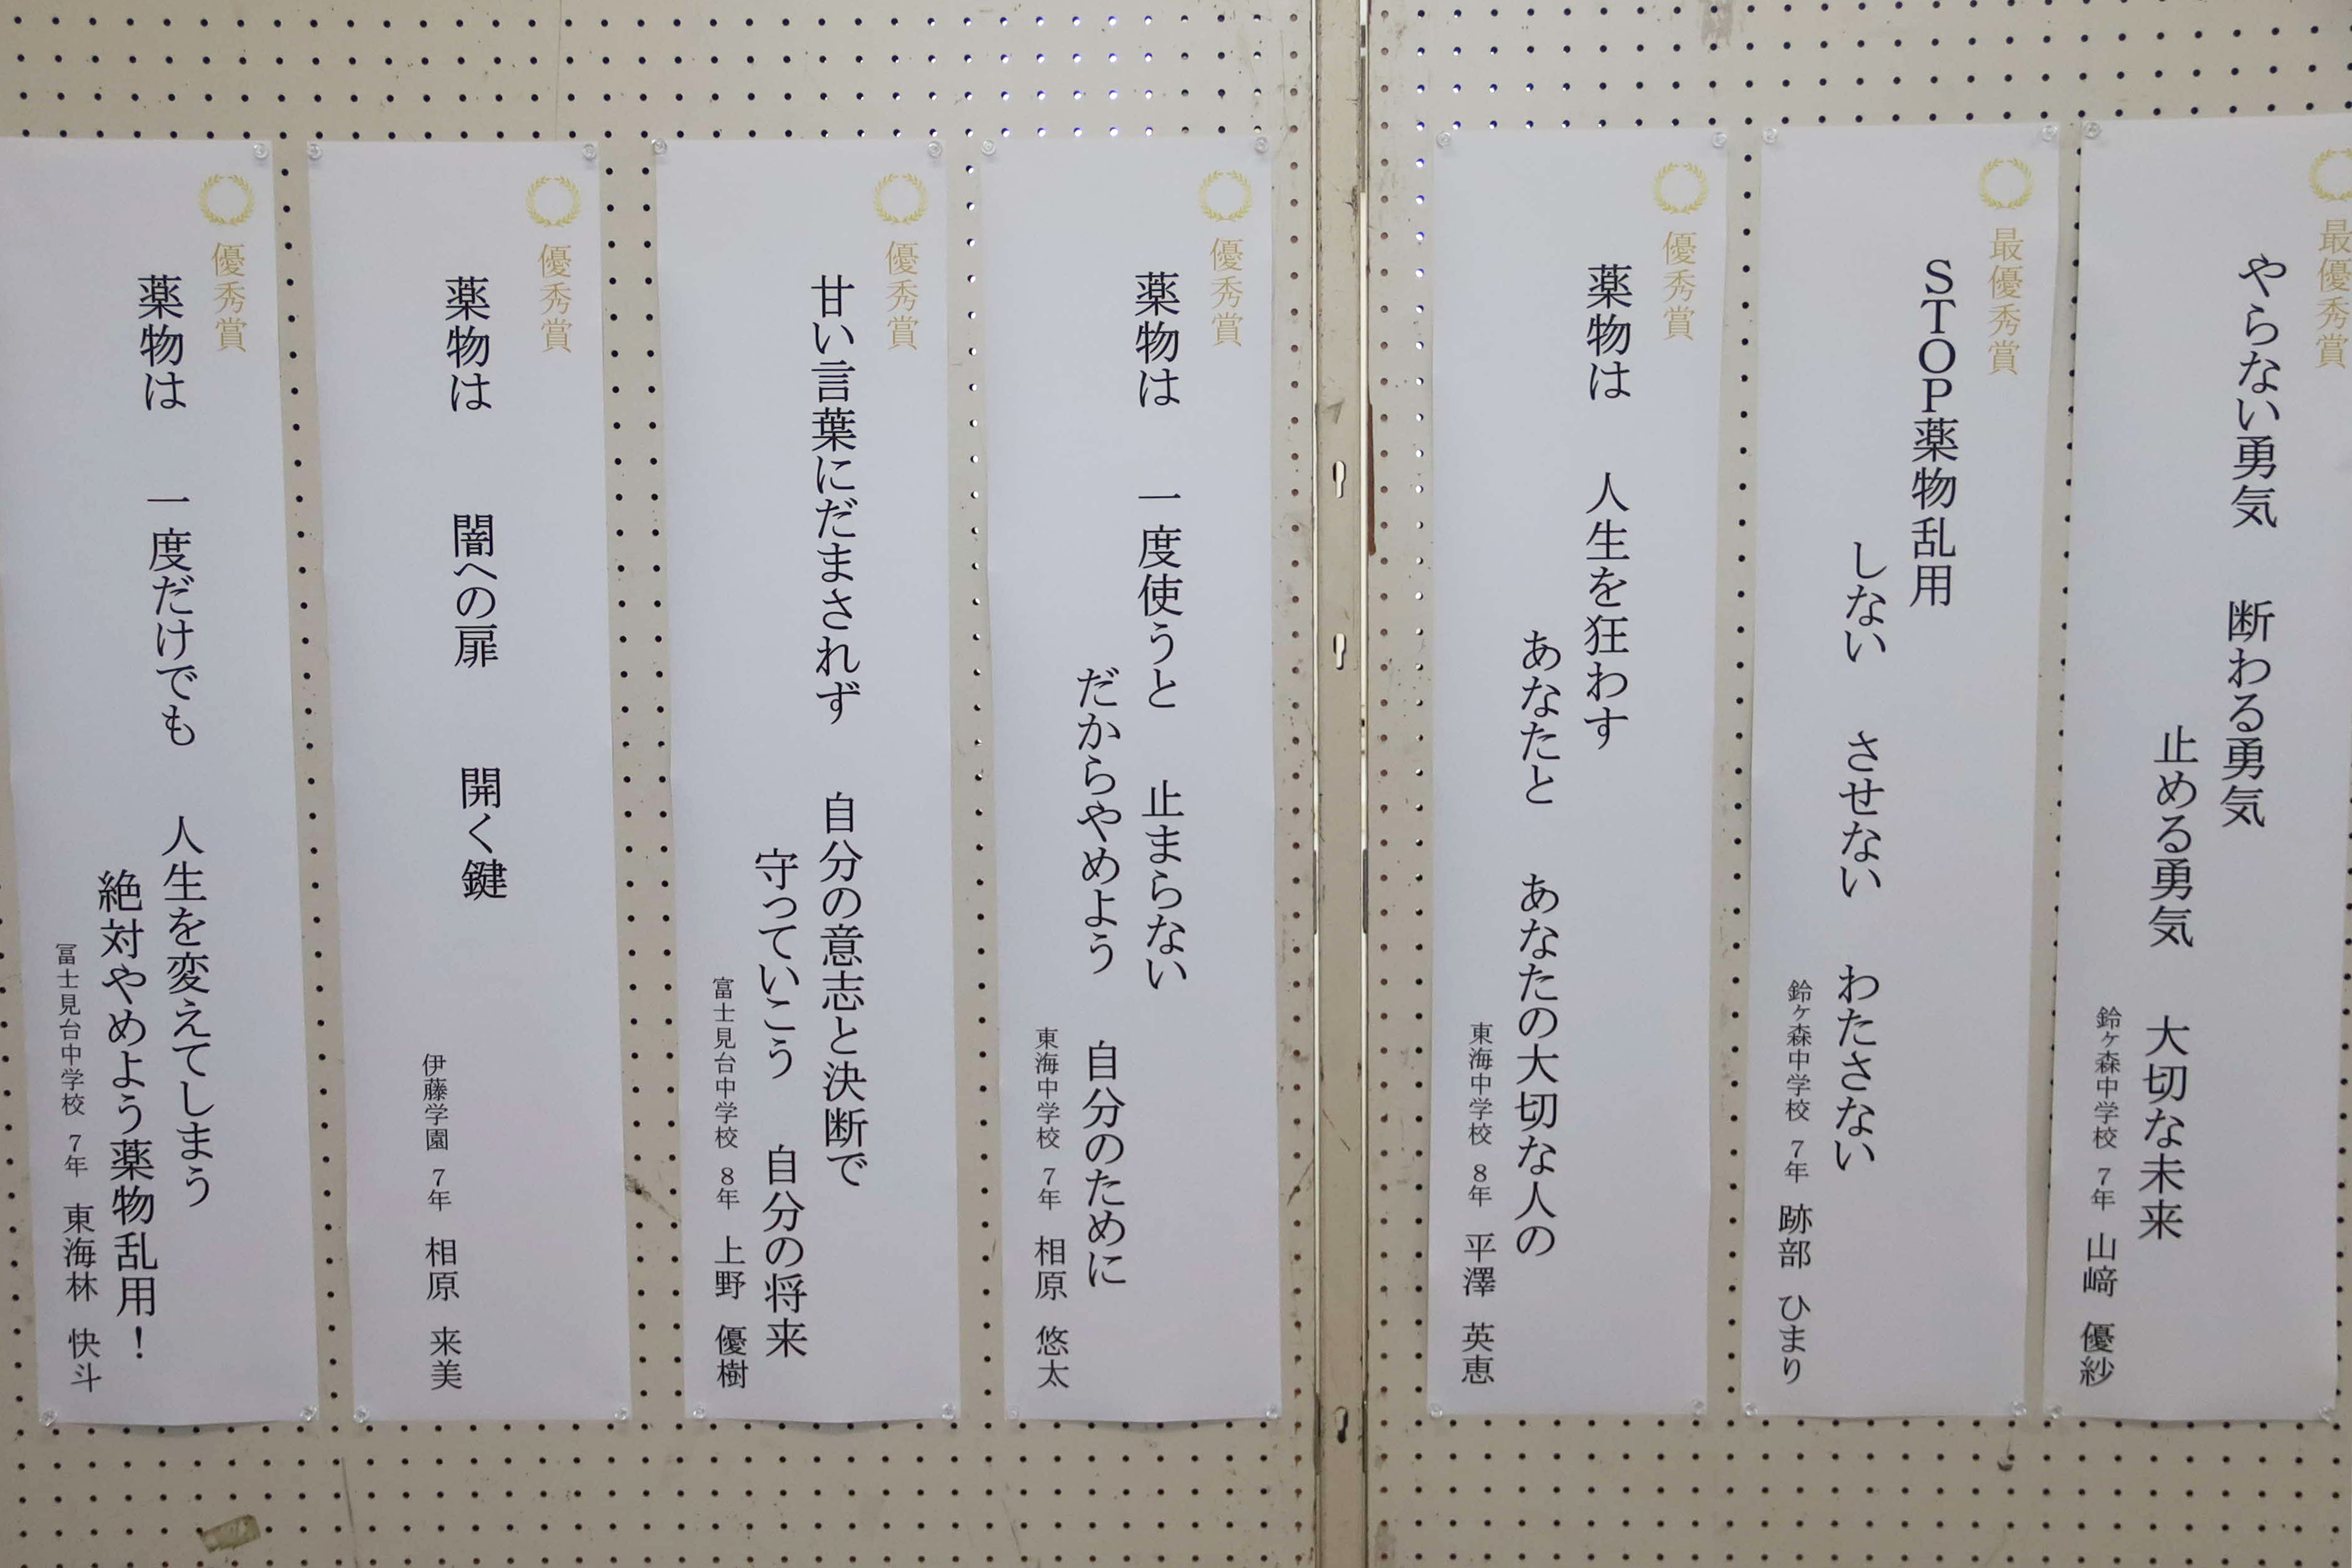 最優秀賞
やらない勇気　断わる勇気
止める勇気　大切な未来
鈴ヶ森中学校　7年　山﨑　優紗
最優秀賞
STOP薬物乱用
しない　させない　わたさない
鈴ヶ森中学校　7年　跡部　ひまり
優秀賞
薬物は　人生を狂わす
あなたと　あなたの大切な人の
東海中学校　8年　平澤　英恵
優秀賞
薬物は　一度使うと　止まらない
だからやめよう　自分のために
東海中学校　7年　相原　悠太
優秀賞
甘い言葉にだまされず　自分の意志と決断で
守っていこう　自分の将来
冨士見台中学校　8年　上野　優樹
優秀賞
薬物は　闇への扉　開く鍵
伊藤学園　7年　相原　来美
優秀賞
薬物は　一度だけでも　人生を変えてしまう
絶対やめよう薬物乱用！
冨士見台中学校　7年　東海林　快斗